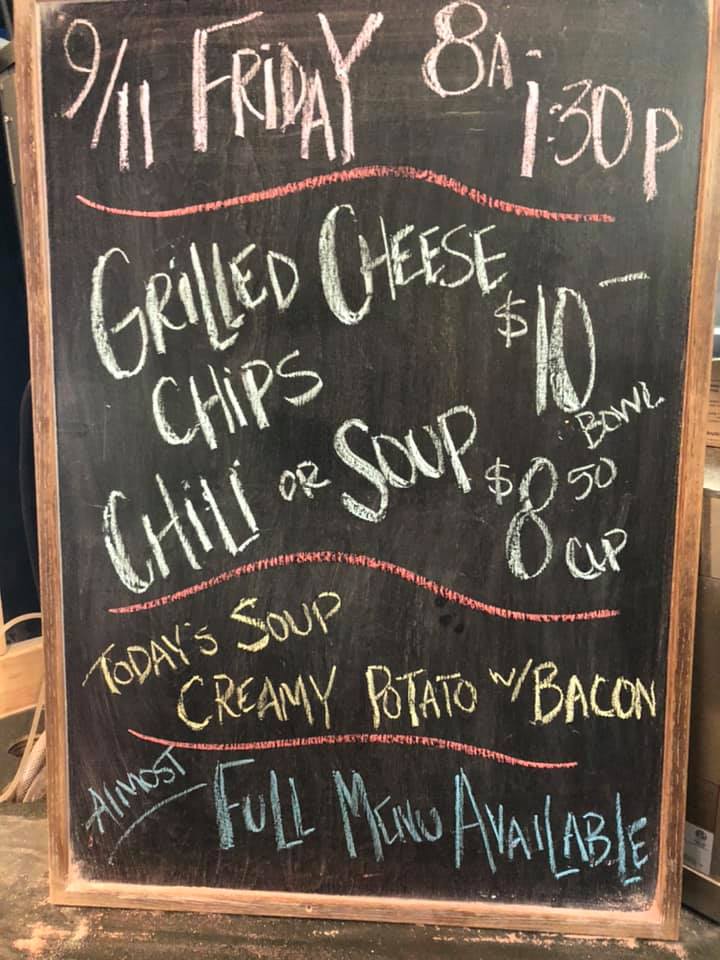 9/11 FRIDAY 8A-1:30P
GRILLED CHEESE
CHIPS $10- BOWL
CHILI OR SOUP $8 50 CUP
TODAY'S SOUP
CREAMY POTATO W/ BACON
ALMOST FULL MENU AVAILABLE